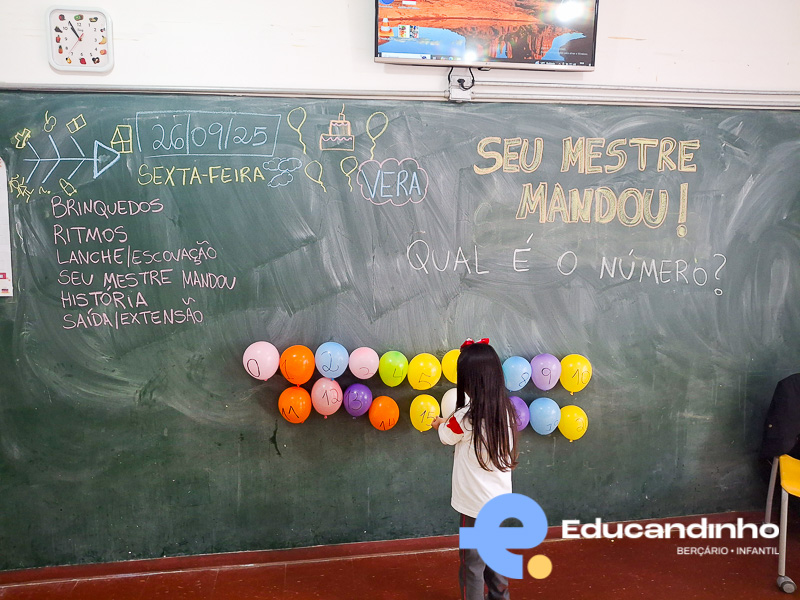 26/09/25
SEXTA-FEIRA
VERA
BRINQUEDOS
RITMOS
LANCHE/ESCOVAÇÃO
SEU MESTRE MANDOU
HISTÓRIA
SAÍDA/EXTENSÃO
SEU MESTRE
MANDOU!
QUAL É O NÚMERO?
0 2 3 4 5 8 9 10
11 12 13 15
Educandinho
BERÇÁRIO • INFANTIL